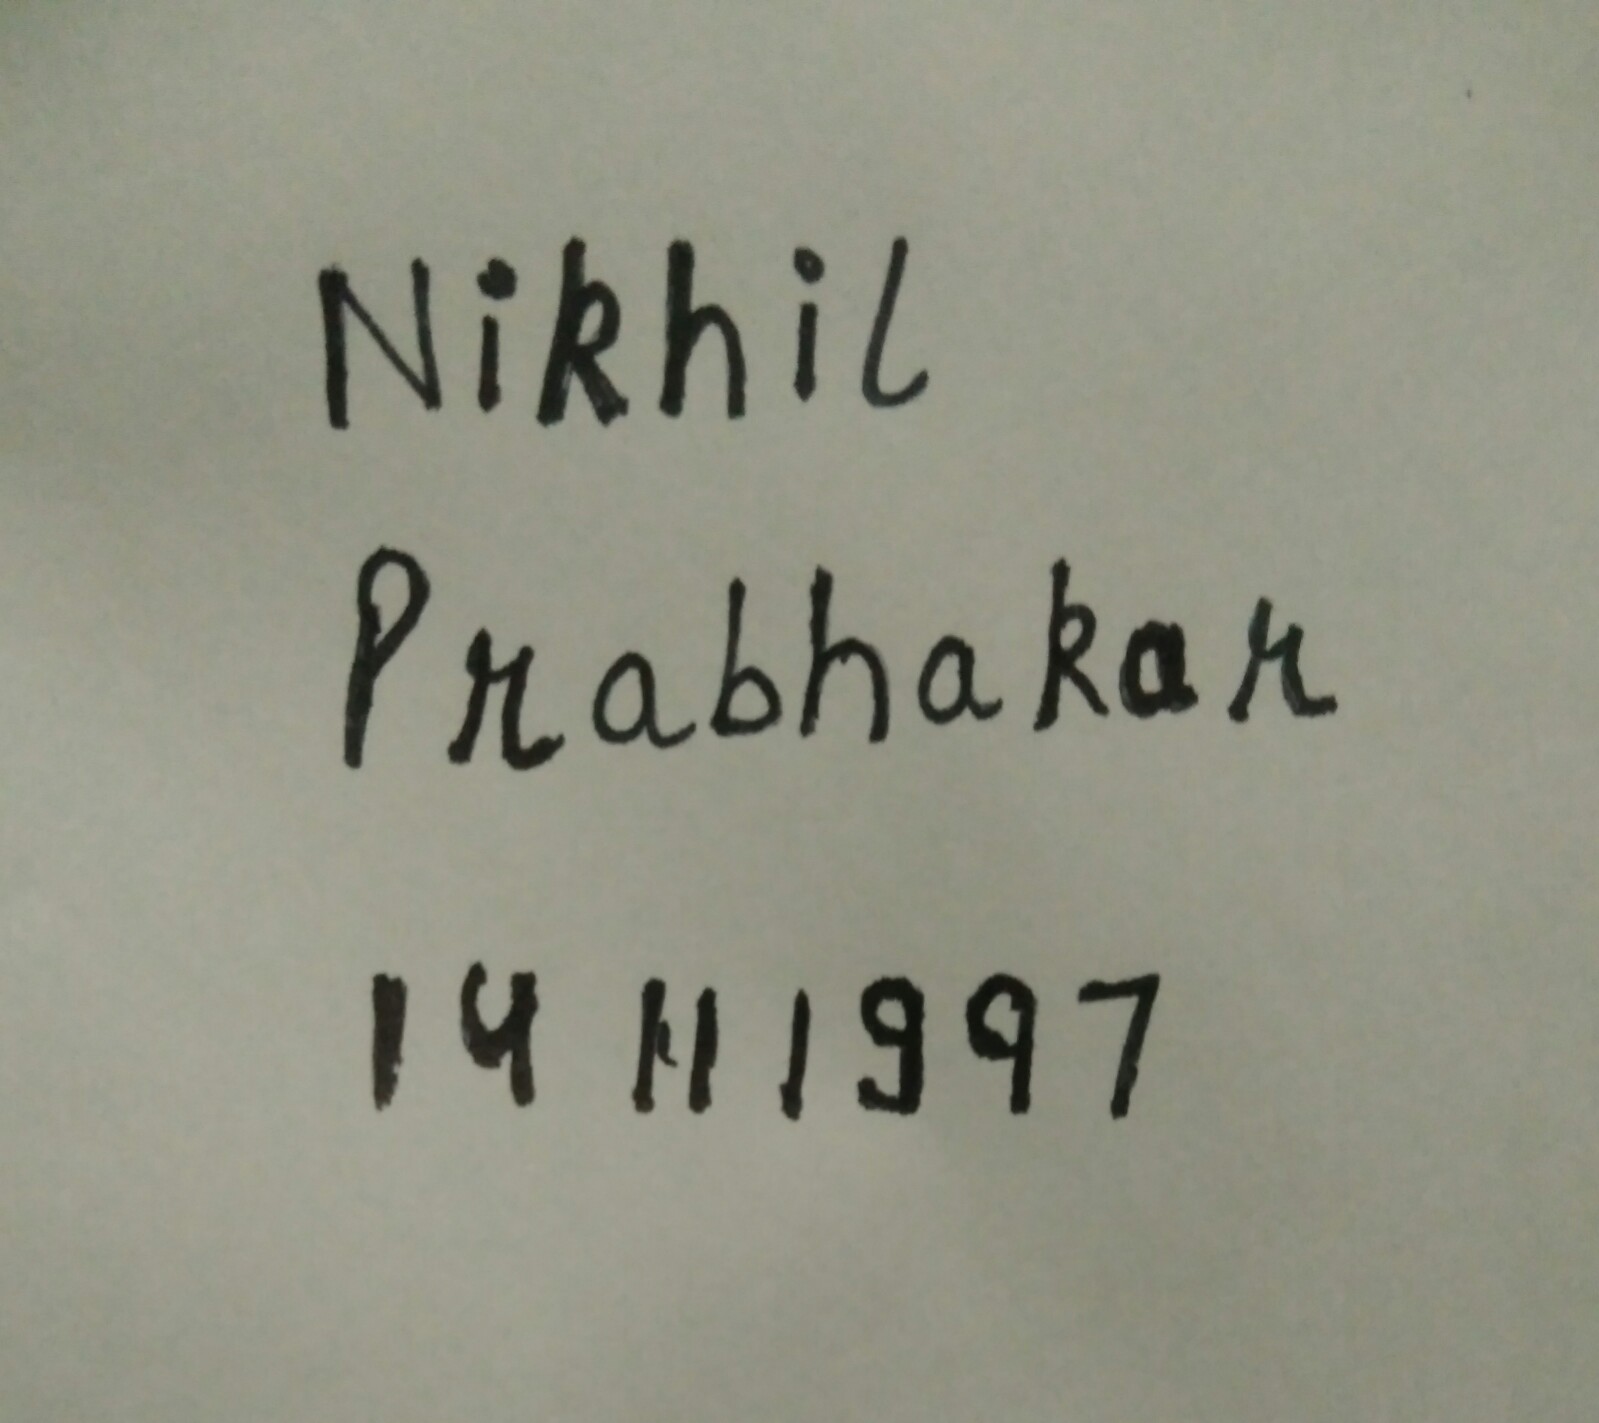 Nikhil
Prabhakar
14 11 1997